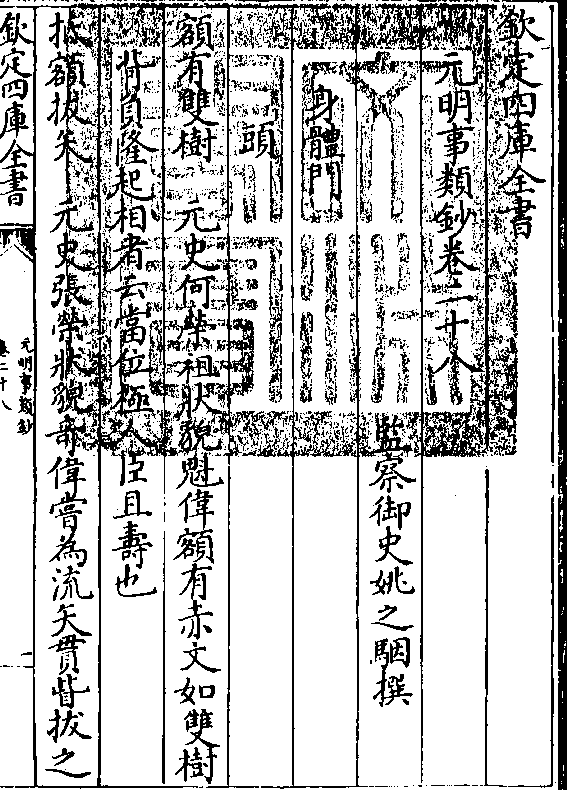 欽定四庫全書
元明事類鈔卷二十八
監察御史姚之駰撰
身體門
頭
額有雙樹 元史何榮祖狀貌魁偉額有赤文如雙樹
背負隆起相者云當位極人臣且壽也
抵額拔矢 元史張榮狀貌奇偉嘗為流矢貫眥拔之
欽定四庫全書
元明事類鈔
卷二十八
一